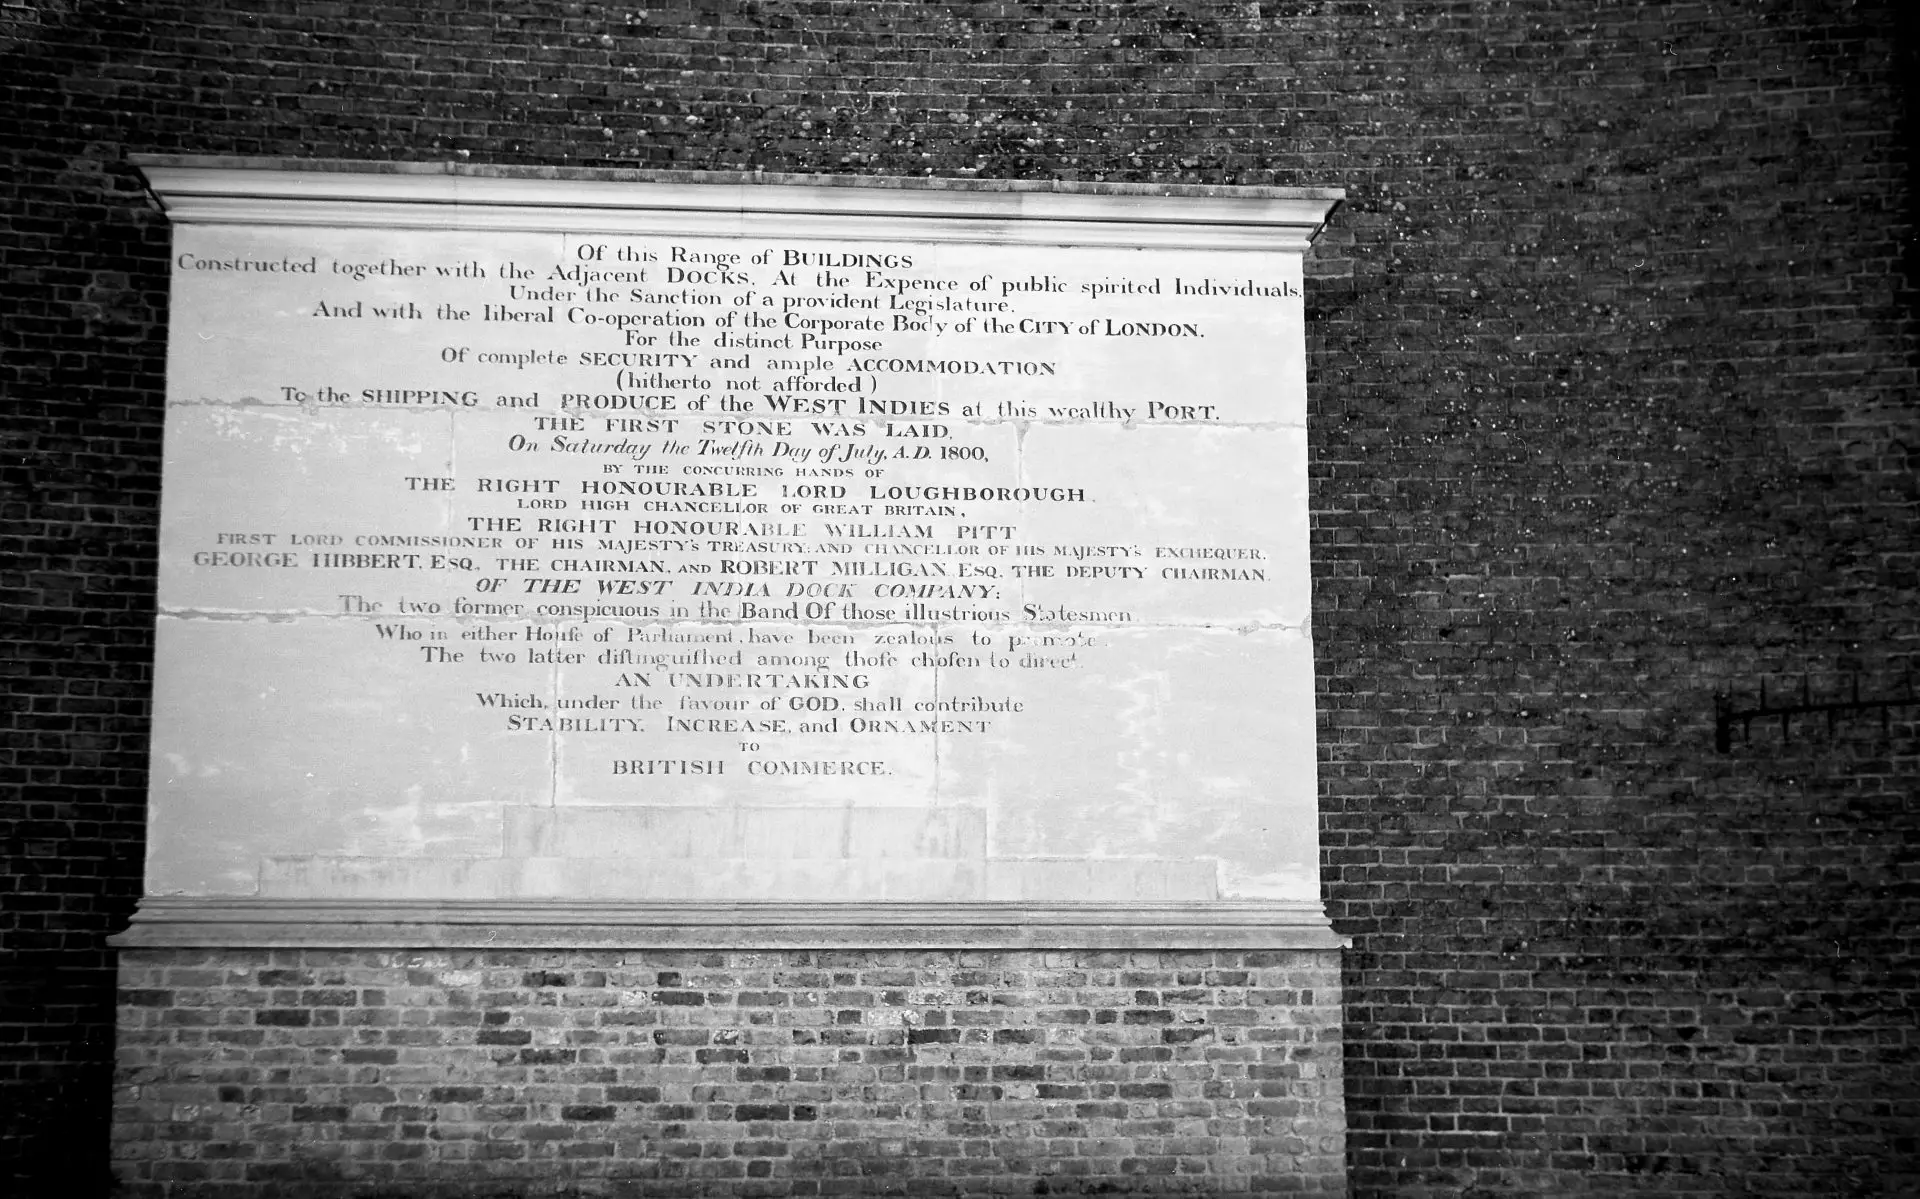 Of this Range of BUILDINGS
Constructed together with the Adjacent DOCKS, At the Expence of public spirited Individuals,
Under the Sanction of a provident Legislature,
And with the liberal Co-operation of the Corporate Body of the CITY of LONDON,
For the distinct Purpose
Of complete SECURITY and ample ACCOMMODATION
(hitherto not afforded)
To the SHIPPING and PRODUCE of the WEST INDIES at this wealthy PORT.
THE FIRST STONE WAS LAID,
On Saturday the Twelfth Day of July, A.D. 1800,
BY THE CONCURRING HANDS OF
THE RIGHT HONOURABLE LORD LOUGHBOROUGH,
LORD HIGH CHANCELLOR OF GREAT BRITAIN,
THE RIGHT HONOURABLE WILLIAM PITT
FIRST LORD COMMISSIONER OF HIS MAJESTY's TREASURY; AND CHANCELLOR OF HIS MAJESTY's EXCHEQUER,
GEORGE HIBBERT, ESQ. THE CHAIRMAN, AND ROBERT MILLIGAN, ESQ. THE DEPUTY CHAIRMAN
OF THE WEST INDIA DOCK COMPANY:
The two former conspicuous in the Band Of those illustrious Statesmen
Who in either Houſe of Parliament, have been zealous to promote,
The two latter diſtinguiſhed among thoſe choſen to direct,
AN UNDERTAKING
Which, under the favour of GOD, shall contribute
STABILITY, INCREASE, and ORNAMENT
TO
BRITISH COMMERCE.